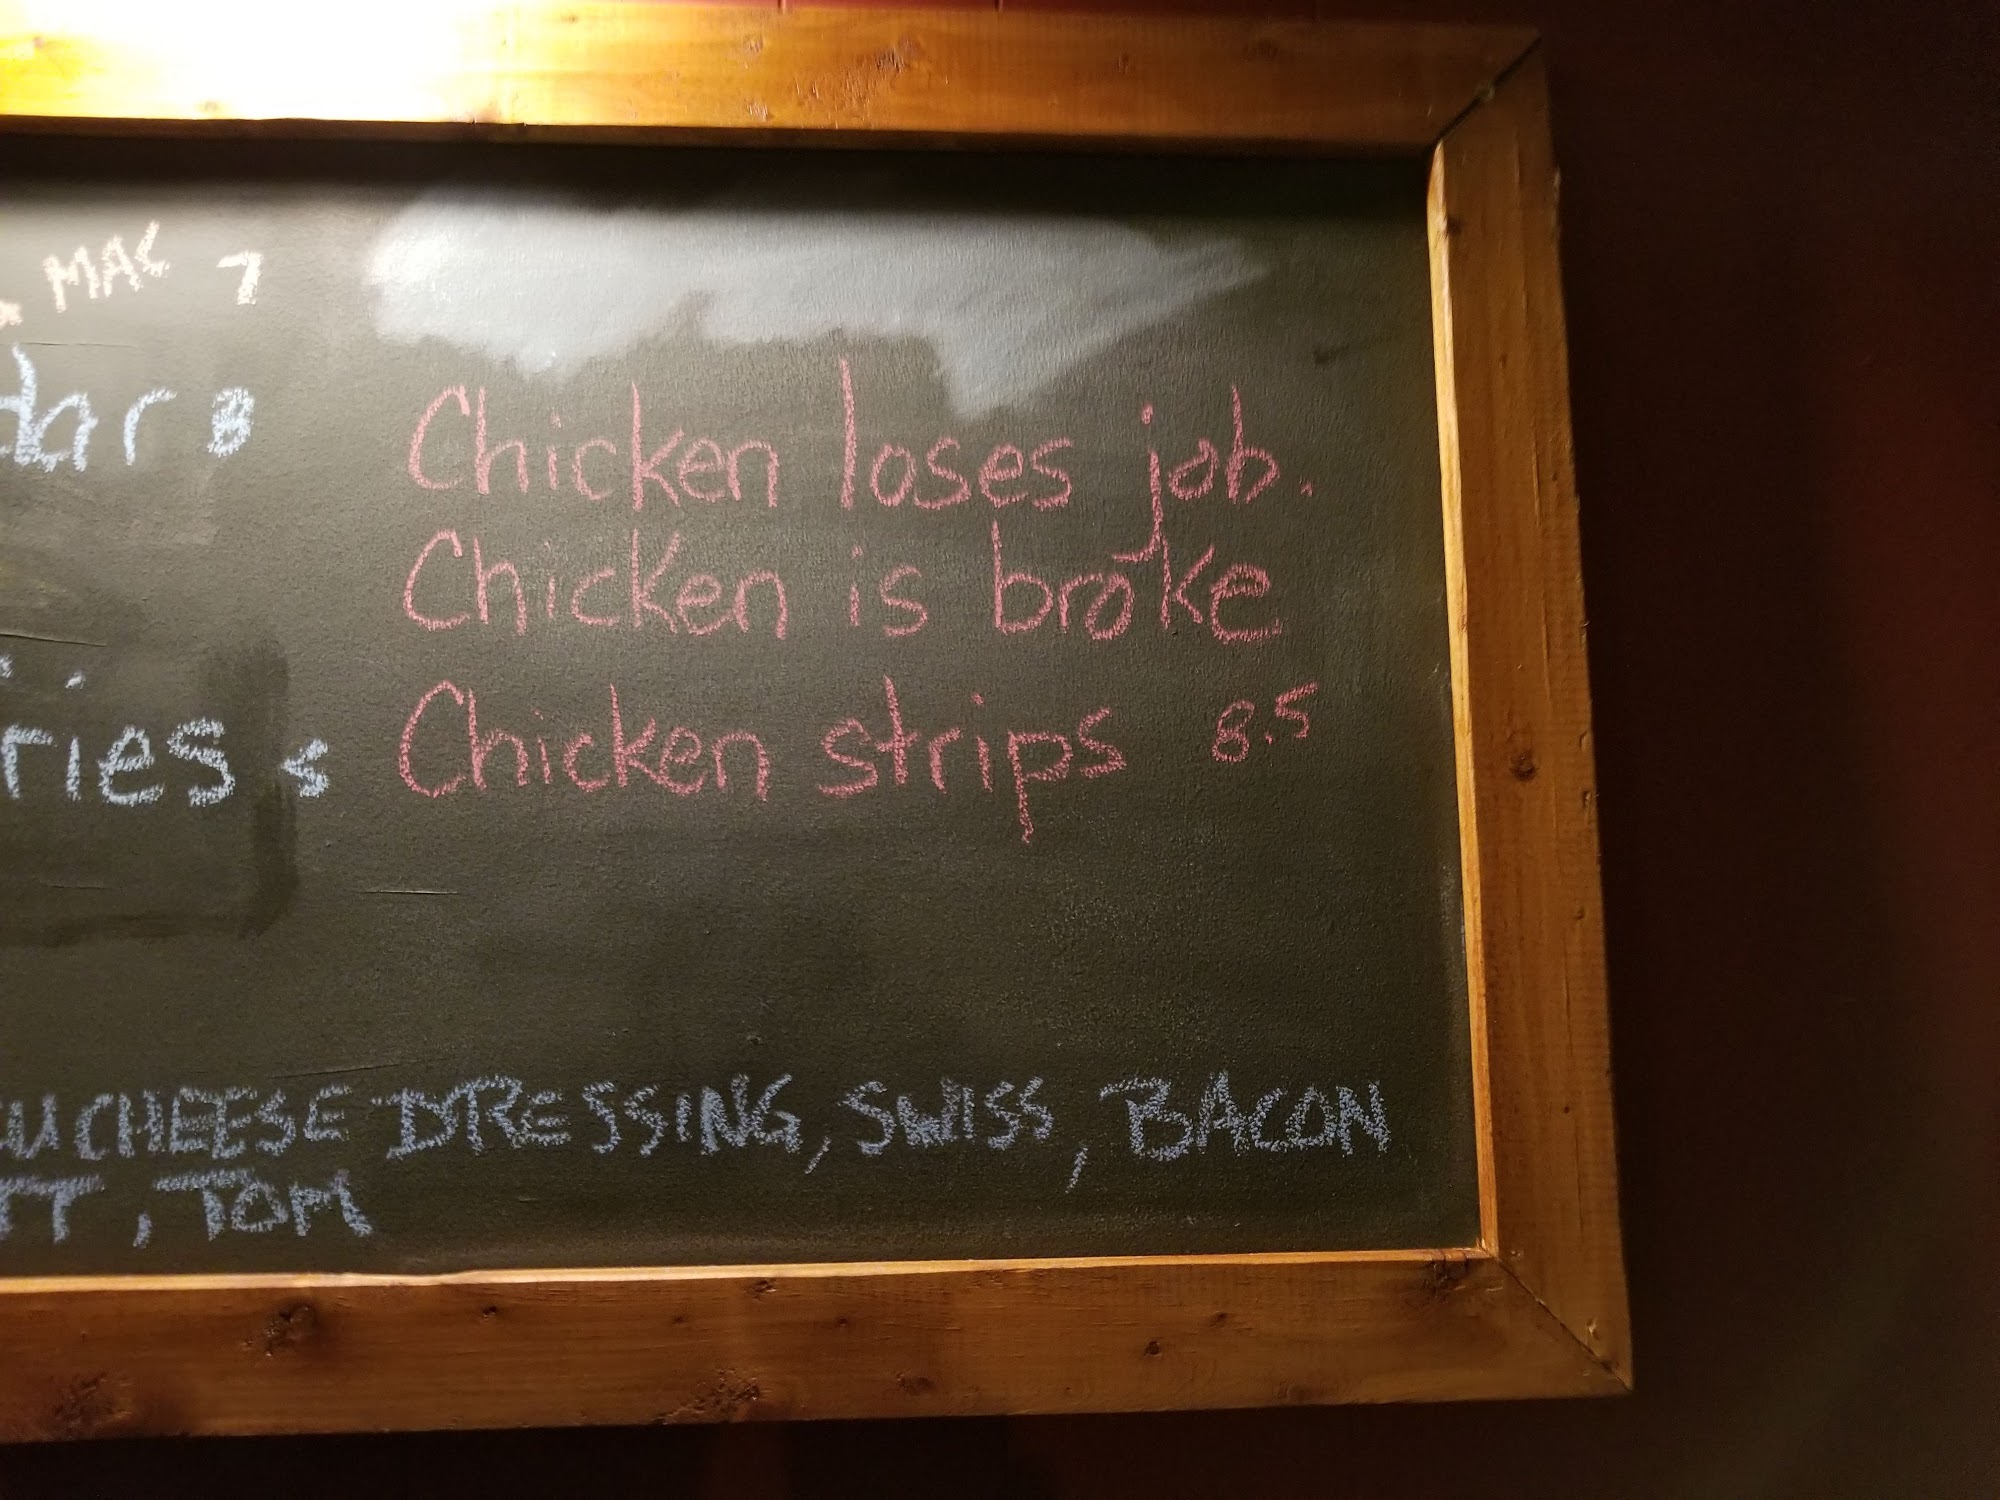 MAC 7
8
Chicken loses job.
Chicken is broke
ries 5
Chicken strips 8.5
CHEESE DRESSING, SWISS, BACON
TT, TOM